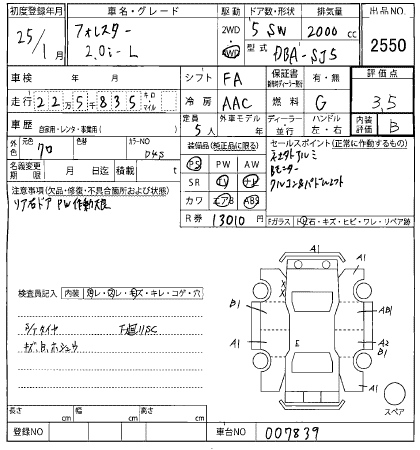 初度登録年月 車名・グレード 駆動 ドア数・形状 排気量 出品NO.
25/1 フォレスター 2.0i-L 2WD 4WD 5 SW 2000 cc 2550
型式 DBA-SJ5
車検 年 月 シフト FA 保証書 有・無 評価点
走行 22万5千835 キロ・マイル 冷房 AAC 燃料 G 3.5
車歴 自家用・レンタ・事業用( ) 定員 5人 外車モデル 年 ディーラー・並行 ハンドル 左・右 内装評価 B
外色 元色 クロ 色替 カラーNO D4S
装備品(純正品に限る) セールスポイント(正常に作動するもの)
名義変更期限 月 日迄 積載 t
PS PW AW
SR ナビ
カワ エアB ABS
Bモニター
注意事項(欠品・修復・不具合箇所および状態)
リア右ドア PW作動
R券 13010 円
Fガラス トビ石・キズ・ヒビ・ワレ・リペア跡
検査員記入 内装 ヨゴレ・スレ・キズ・キレ・コゲ・穴
A1
A1
B1 AB1
A1 E A2
B1
A1
スペア
長さ cm 幅 cm 高さ cm
登録NO 車台NO 007839